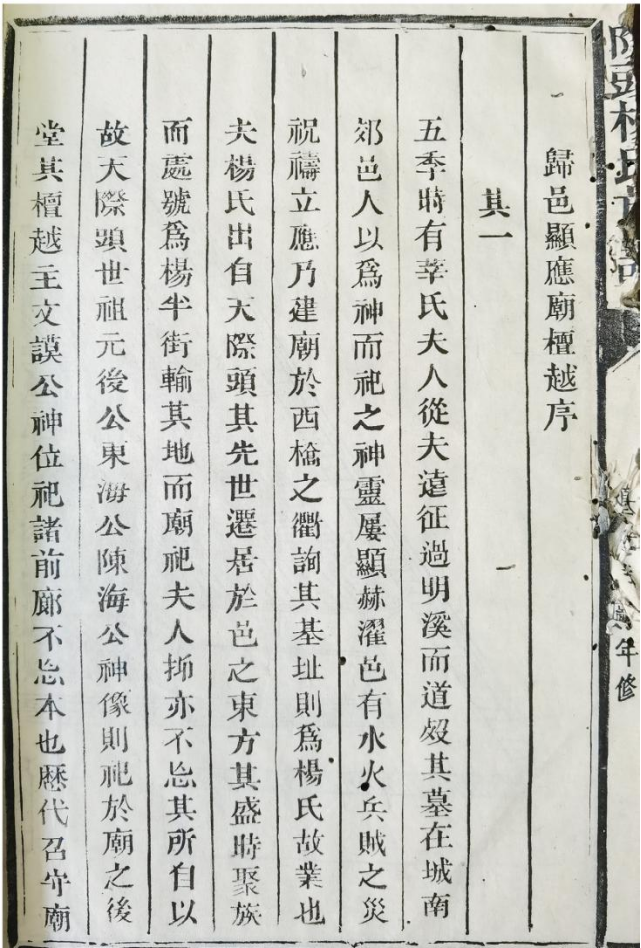 歸邑顯應廟檀越序
其一
五季時有莘氏夫人從夫遠征過明溪而道歿其墓在城南
郊邑人以爲神而祀之神靈屢顯赫濯邑有水火兵賊之災
祝禱立應乃建廟於西㯫之衢詢其基址則爲楊氏故業也
夫楊氏出自天際頭其先世遷居於邑之東方其盛時聚族
而處號爲楊半街輸其地而廟祀夫人抑亦不忘其所自以
故天際頭世祖元後公東海公陳海公神像則祀於廟之後
堂其檀越主文謨公神位祀諸前廊不忘本也歷代召守廟
年修